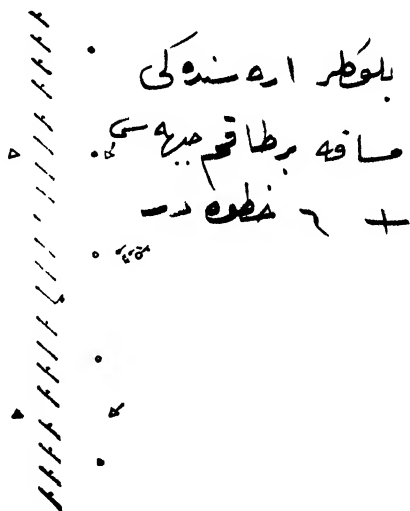 بلوكلر اره سنده كی
مسافه بر طاقم جبهه سی
+ ٦ خطوه در